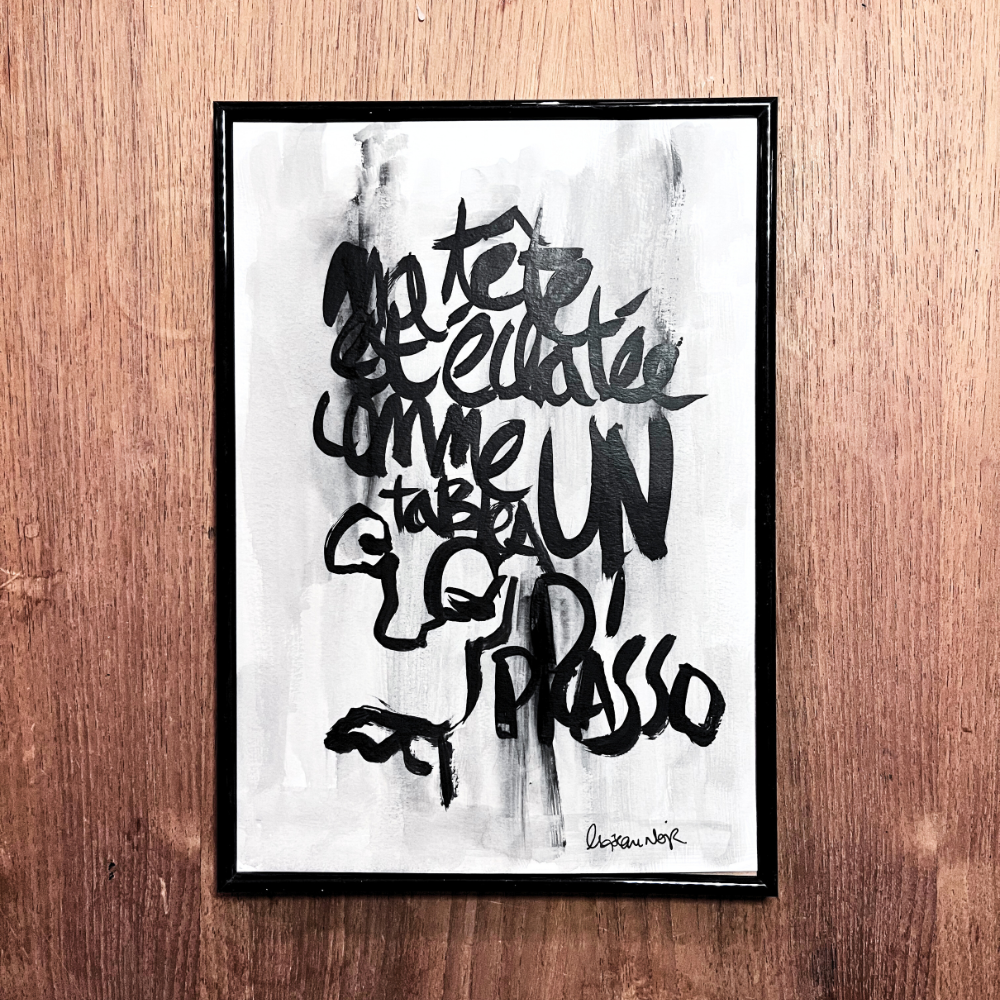 Ma tête
est éclatée
comme UN
taBleA
PicAsso
l'oiseau NoiR